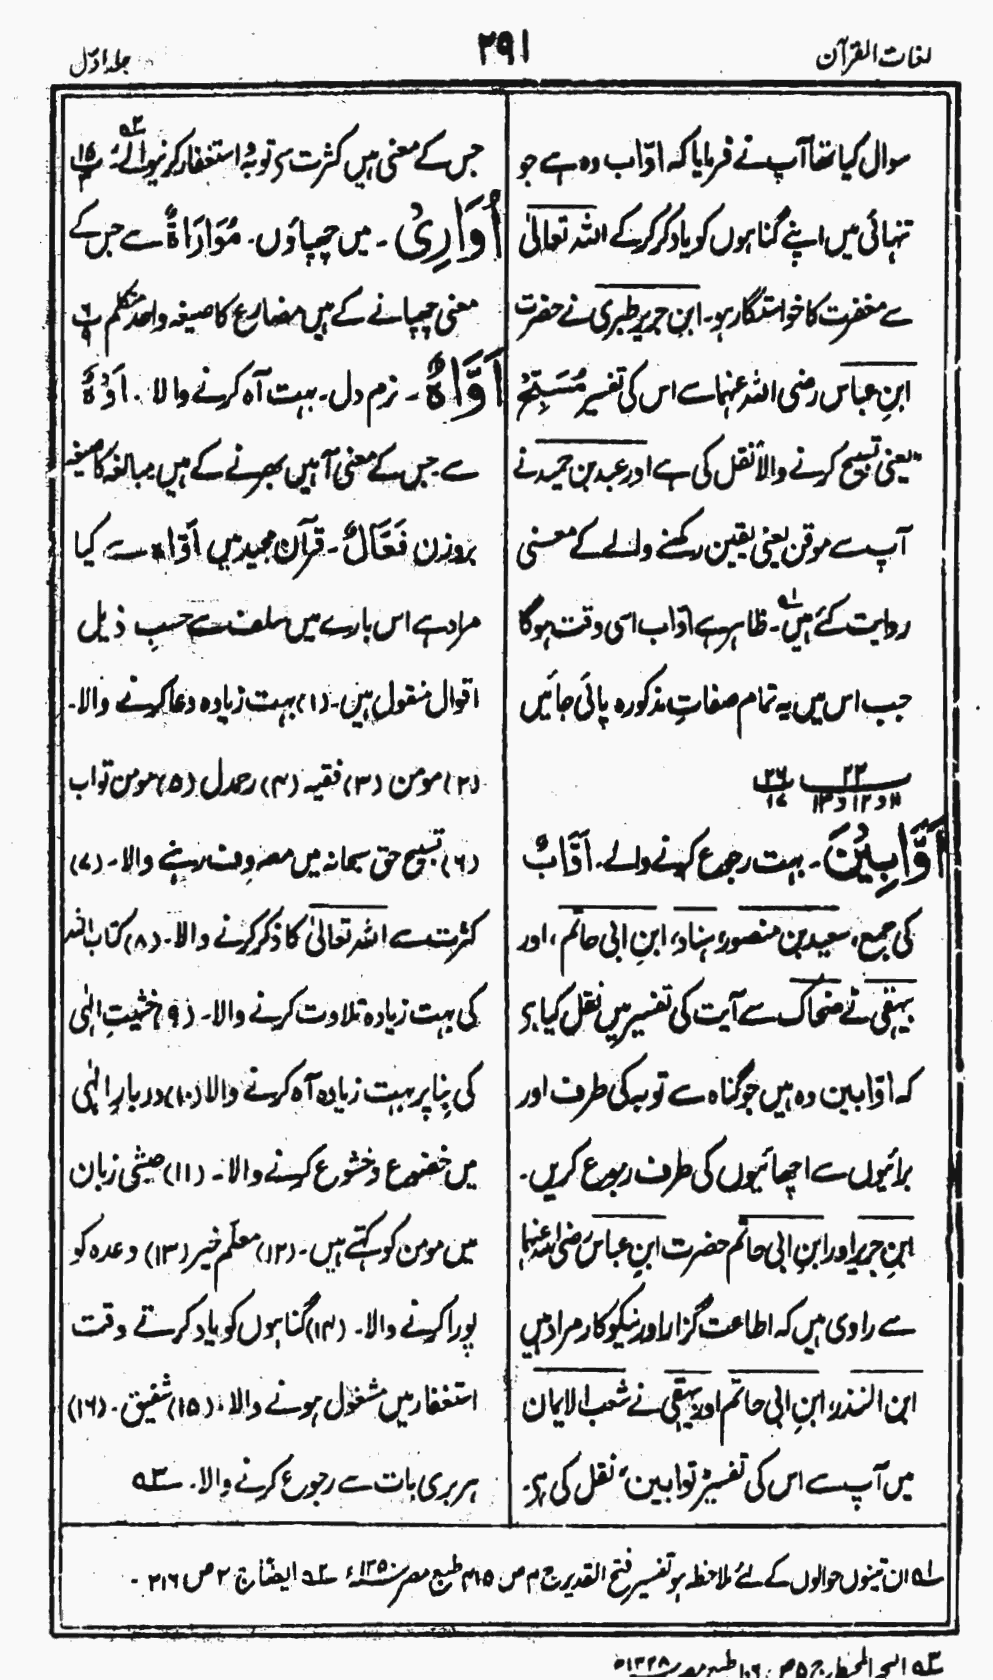 لغات القرآن
۲۹۱
جلد اوّل
سوال کیا تھا آپ نے فرمایا کہ اوّاب وہ ہے جو
تنہائی میں اپنے گناہوں کو یاد کر کر کے اللہ تعالیٰ
سے مغفرت کا خواستگار ہو۔ ابن جریر طبری نے حضرت
ابنِ عباس رضی اللہ عنہما سے اس کی تفسیر مُسَبِّحٌ
"یعنی تسبیح کرنے والا" نقل کی ہے اور عبد بن حمید نے
آپ سے موقن یعنی یقین رکھنے والے کے معنی
روایت کئے ہیں۔ ؎۱ ظاہر ہے اوّاب اسی وقت ہوگا
جب اس میں یہ تمام صفاتِ مذکورہ پائی جائیں
۲۳ ۲۶
۱۱ و ۱۲ و ۱۳ ۱۶
اَوَّابِیْنَ۔ بہت رجوع کرنے والے۔ اَوَّابٌ
کی جمع، سعید بن منصور، ہناد، ابنِ ابی حاتم، اور
بیہقی نے ضحاک سے آیت کی تفسیر میں نقل کیا ہے
کہ اوّابین وہ ہیں جو گناہ سے توبہ کی طرف اور
برائیوں سے اچھائیوں کی طرف رجوع کریں۔
ابنِ جریر اور ابنِ ابی حاتم حضرت ابنِ عباس رضی اللہ عنہما
سے راوی ہیں کہ اطاعت گزار اور نیکو کار مراد ہیں
ابن المنذر، ابنِ ابی حاتم اور بیہقی نے شعب الایمان
میں آپ سے اس کی تفسیر "توابین" نقل کی ہے۔
جس کے معنی ہیں کثرت سے توبہ و استغفار کرنیوالے۔ ؎۲ ۱۵
اُوَارِیْ۔ میں چھپاؤں۔ مُوَارَاةٌ سے جس کے
معنی چھپانے کے ہیں مضارع کا صیغہ واحد متکلم ۶
اَوَّاہٌ۔ نرم دل۔ بہت آہ کرنے والا۔ اَوْہٌ
سے جس کے معنی آہیں بھرنے کے ہیں مبالغہ کا صیغہ
بروزن فَعَّالٌ۔ قرآن مجید میں اَوَّاہ سے کیا
مراد ہے اس بارے میں سلف سے حسبِ ذیل
اقوال منقول ہیں۔ (۱) بہت زیادہ دعا کرنے والا۔
(۲) مومن (۳) فقیہ (۴) رحمدل (۵) مومن تواب
(۶) تسبیح حق سبحانہ میں مصروف رہنے والا۔ (۷)
کثرت سے اللہ تعالیٰ کا ذکر کرنے والا۔ (۸) کتاب اللہ
کی بہت زیادہ تلاوت کرنے والا۔ (۹) خشیتِ الٰہی
کی بنا پر بہت زیادہ آہ کرنے والا (۱۰) دربارِ الٰہی
میں خضوع و خشوع کرنے والا۔ (۱۱) حبشی زبان
میں مومن کو کہتے ہیں۔ (۱۲) معلّم خیر (۱۳) وعدہ کو
پورا کرنے والا۔ (۱۴) گناہوں کو یاد کرتے وقت
استغفار میں مشغول ہونے والا، (۱۵) شفیق۔ (۱۶)
ہر بری بات سے رجوع کرنے والا۔ ؎۳
؎۱ ان تینوں حوالوں کے لئے ملاحظہ ہو تفسیر فتح القدیر ج ۴ ص ۴۱۵ طبع مصر ۱۳۵۰ء ؎۲ ایضاً ج ۳ ص ۲۱۶۔
؎۳ البحر المحیط ج ۵ ص ۱۰۶ طبع مصر ۱۳۲۸ھ